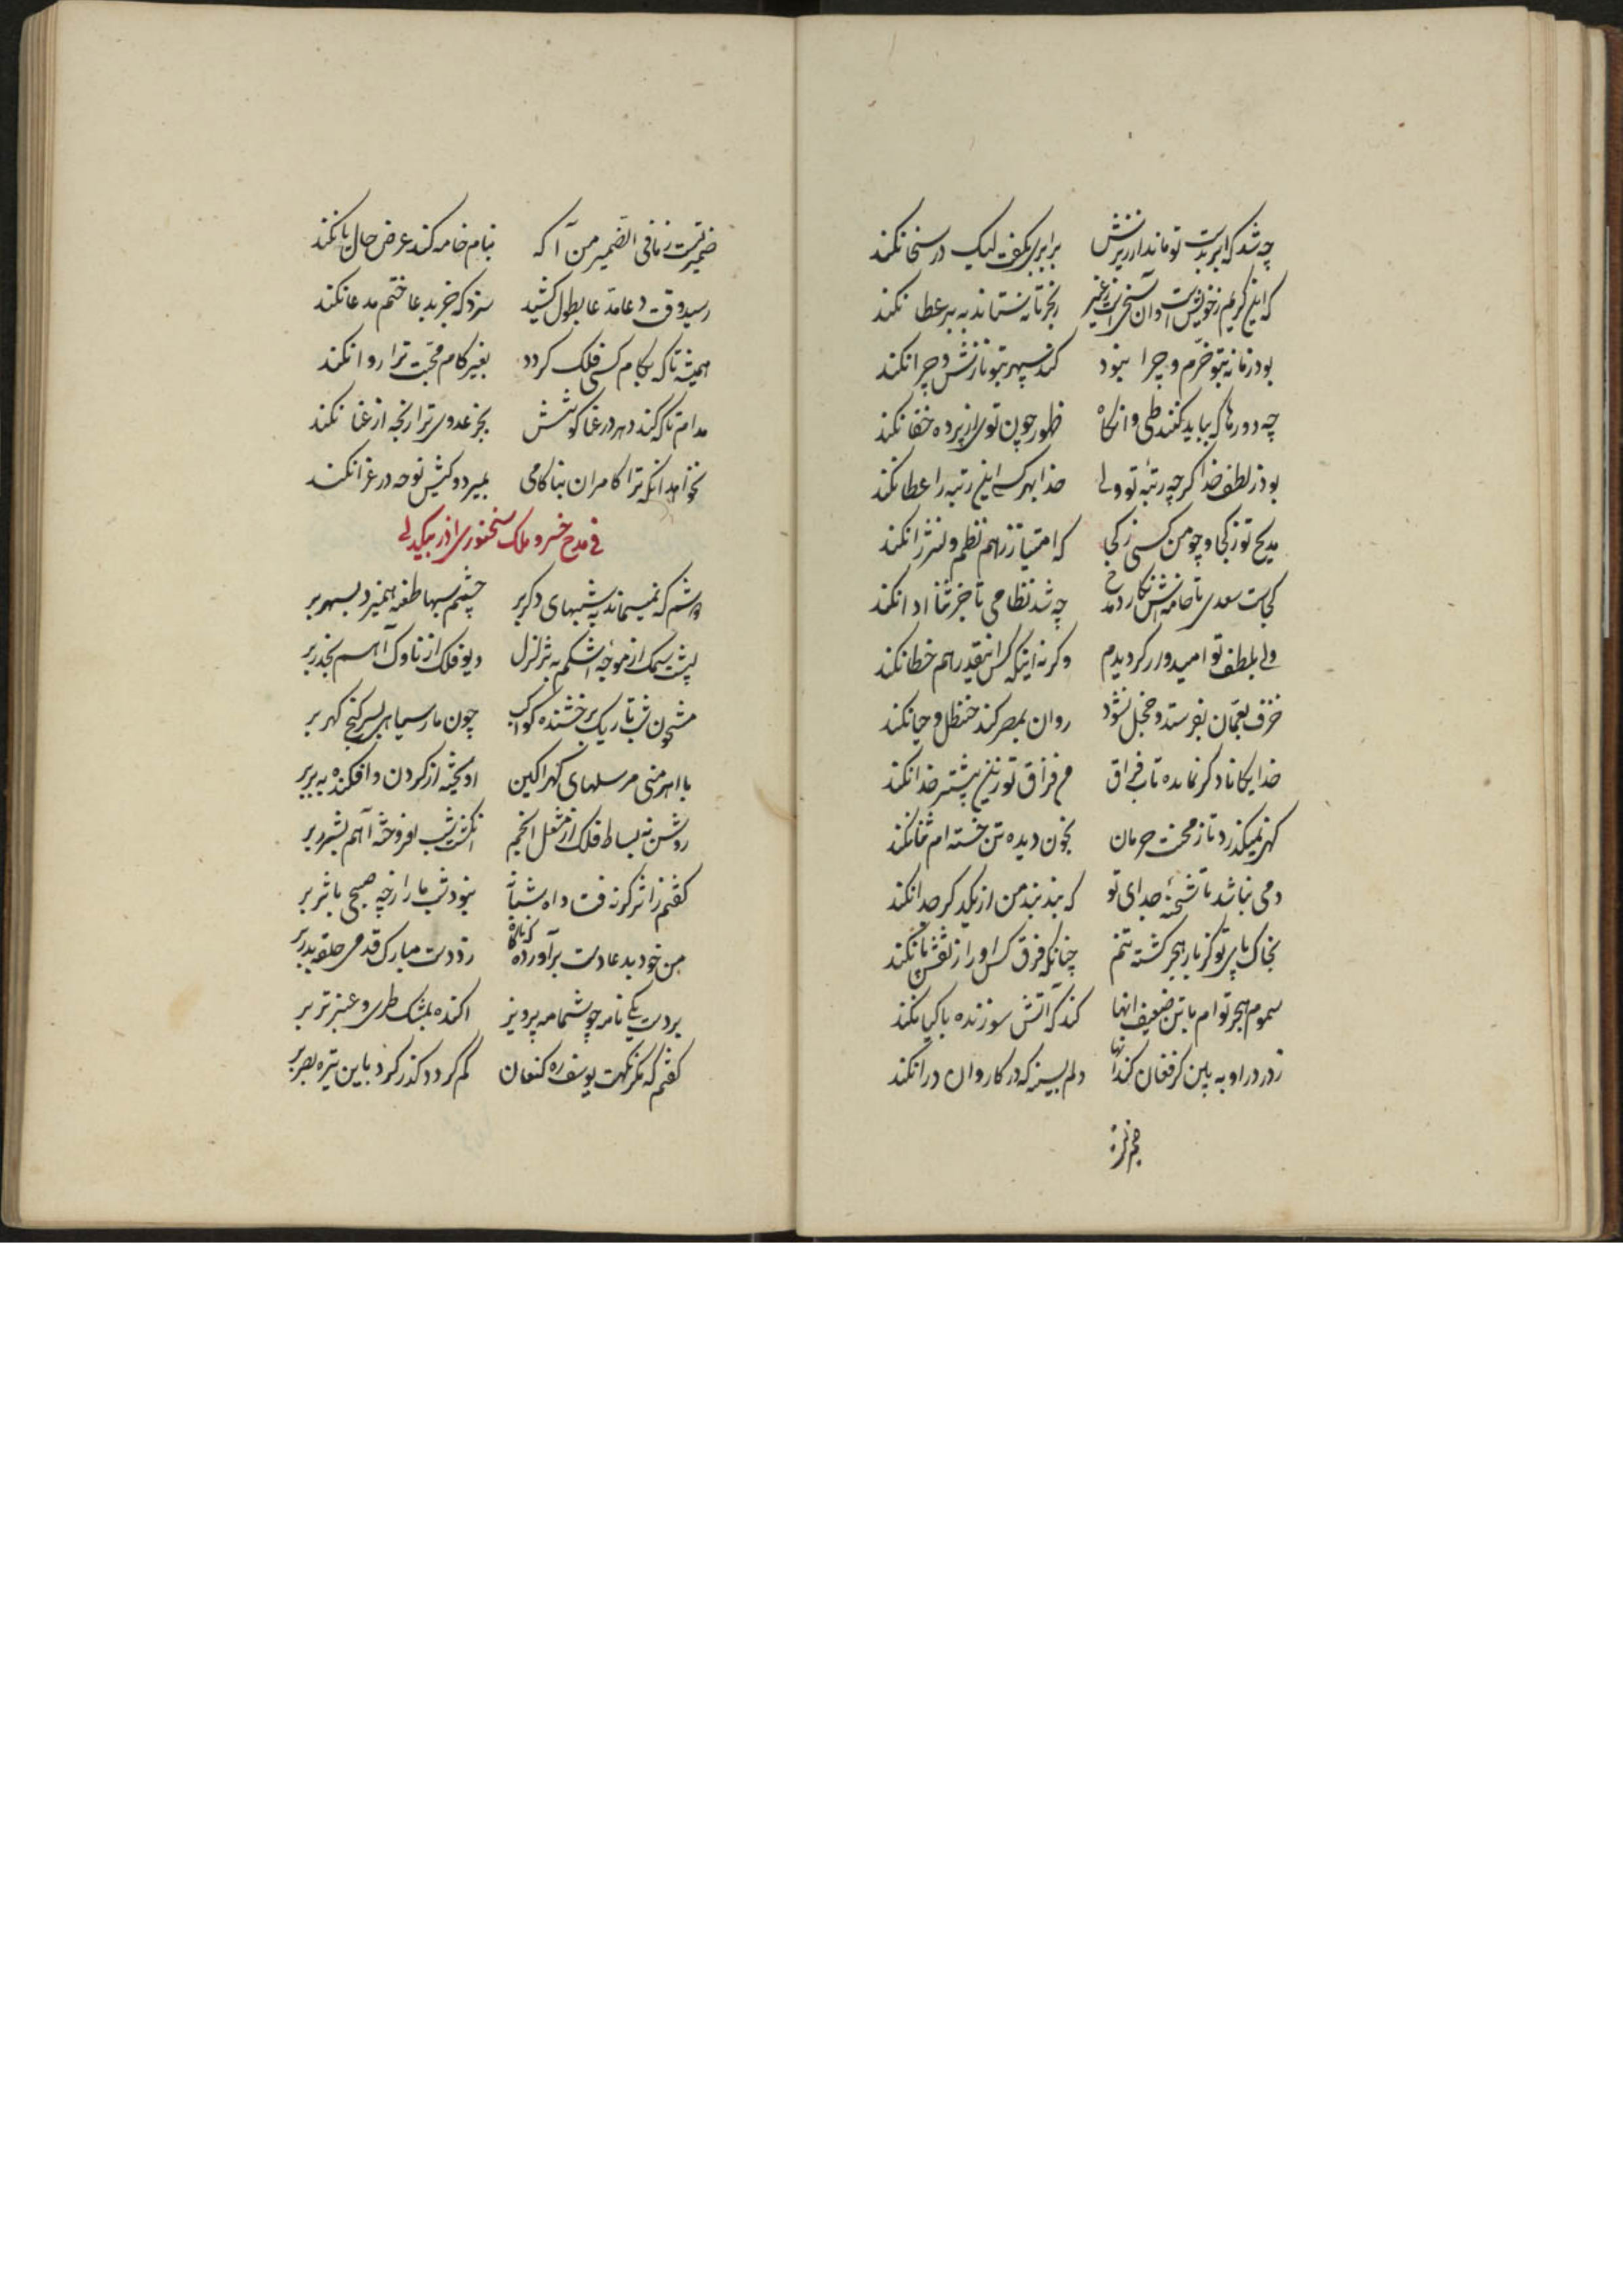 چه شد که ابر بدست تو ماند از ریزش برابری بکفت لیک در سخا نکند
که این کریم ز خویش است و آن سخی از غیر ز بحر تا نستاند به بر عطا نکند
بود زمانه بتو خرم و چرا نبود کند سپهر بتو نازش و چرا نکند
چه دورها که بباید کنند طی و انگاه ظهور چون توی از پرده خفا نکند
بود ز لطف خدا کرچه رتبه تو ولی خدا بهر کسی این رتبه را عطا نکند
مدیح تو ز کجا و چو من کسی ز کجا که امتیاز ز هم نظم و نثر را نکند
کجاست سعدی تا خامه‌اش نکارد مدح چه شد نظامی تا جز ثنا ادا نکند
ولی بلطف تو امیدوار کردیدم وکرنه اینکه کس اینقدر هم خطا نکند
خزف بعمان بفرستد و خجل نشود روان بمصر کند حنظل و حیا نکند
خدایکانا دکر نمانده تاب فراق غم فراق تو زین بیشتر خدا نکند
کهی نمیکذرد تا ز محنت حرمان بخون دیده تن خسته‌ام شنا نکند
دمی نباشد تا شحنه جدای تو که بند بند من از یکدکر جدا نکند
بخاک پای تو کز بار هجر کشته تنم چنانکه فرق کس او را ز نقش پا نکند
سموم هجر تو ام با تن ضعیف انها کند که آتش سوزنده با کیا نکند
ز درد راو به پلین کر فغان کند دلم بسیز که در کاروان درا نکند
ضمیر تست ز مافی الضمیر من آکه بنام خامه کند عرض حال یا نکند
رسید وقت دعا مدعا بطول کشید سزد که جز بدعا ختم مدعا نکند
همیشه تا که بکام کسی فلک کردد بغیر کام محبت ترا روا نکند
مدام تا که کند دهر در غنا کوشش بجز عدوی ترا رنجه از عنا نکند
بخواهد انکه ترا کامران بناکامی بمیرد و کیش نوحه در عزا نکند
فی مدح خسرو ملک سخنوری اذر بیکدلی
دوشم که نمیماند به شبهای دکر بر چشم بسها طعنه همیزد بسهر بر
پشت سمک از موجه اشکم به تزلزل دیو فلک از ناوک آهم بخدر بر
مشحون شب تاریک برخشنده کواکب چون مار سیاهی بسر کنج کهر بر
با اهرمنی مرسلهای کهراکین اویخته از کردن و افکنده به بر بر
روشن نه بساط فلک از مشعل انجم انکشت شب افروخته آهم بشرر بر
کفتم ز اثر کرنه فتاد آه شبانه نبود شب ما را ز چه صبحی باثر بر
من خود بدعا دست برآورده که ناکاه زد دست مبارک قدمی حلقه بدر بر
بر دست یکی نامه چو شمامه پرویز اکنده بمشک طری و عنبر تر بر
کفتم که مکر نکهت یوسف ره کنعان کم کرد و کذر کرد باین تیره بصر بر